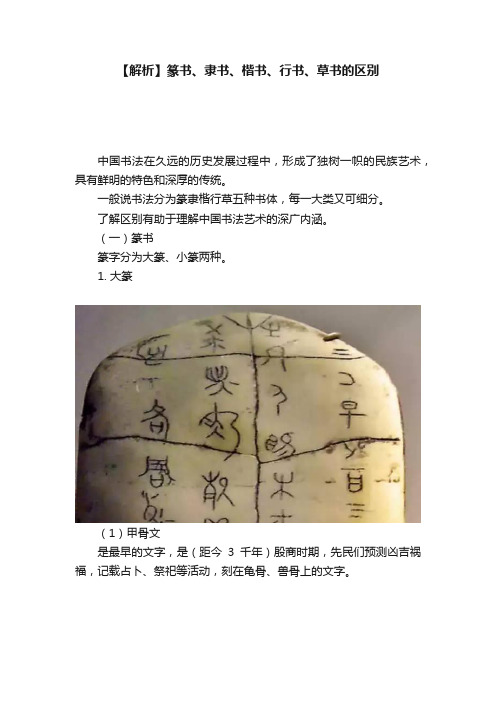 【解析】篆书、隶书、楷书、行书、草书的区别
中国书法在久远的历史发展过程中，形成了独树一帜的民族艺术，
具有鲜明的特色和深厚的传统。
一般说书法分为篆隶楷行草五种书体，每一大类又可细分。
了解区别有助于理解中国书法艺术的深广内涵。
（一）篆书
篆字分为大篆、小篆两种。
1. 大篆
（1）甲骨文
是最早的文字，是（距今 3 千年）殷商时期，先民们预测凶吉祸
福，记载占卜、祭祀等活动，刻在龟骨、兽骨上的文字。